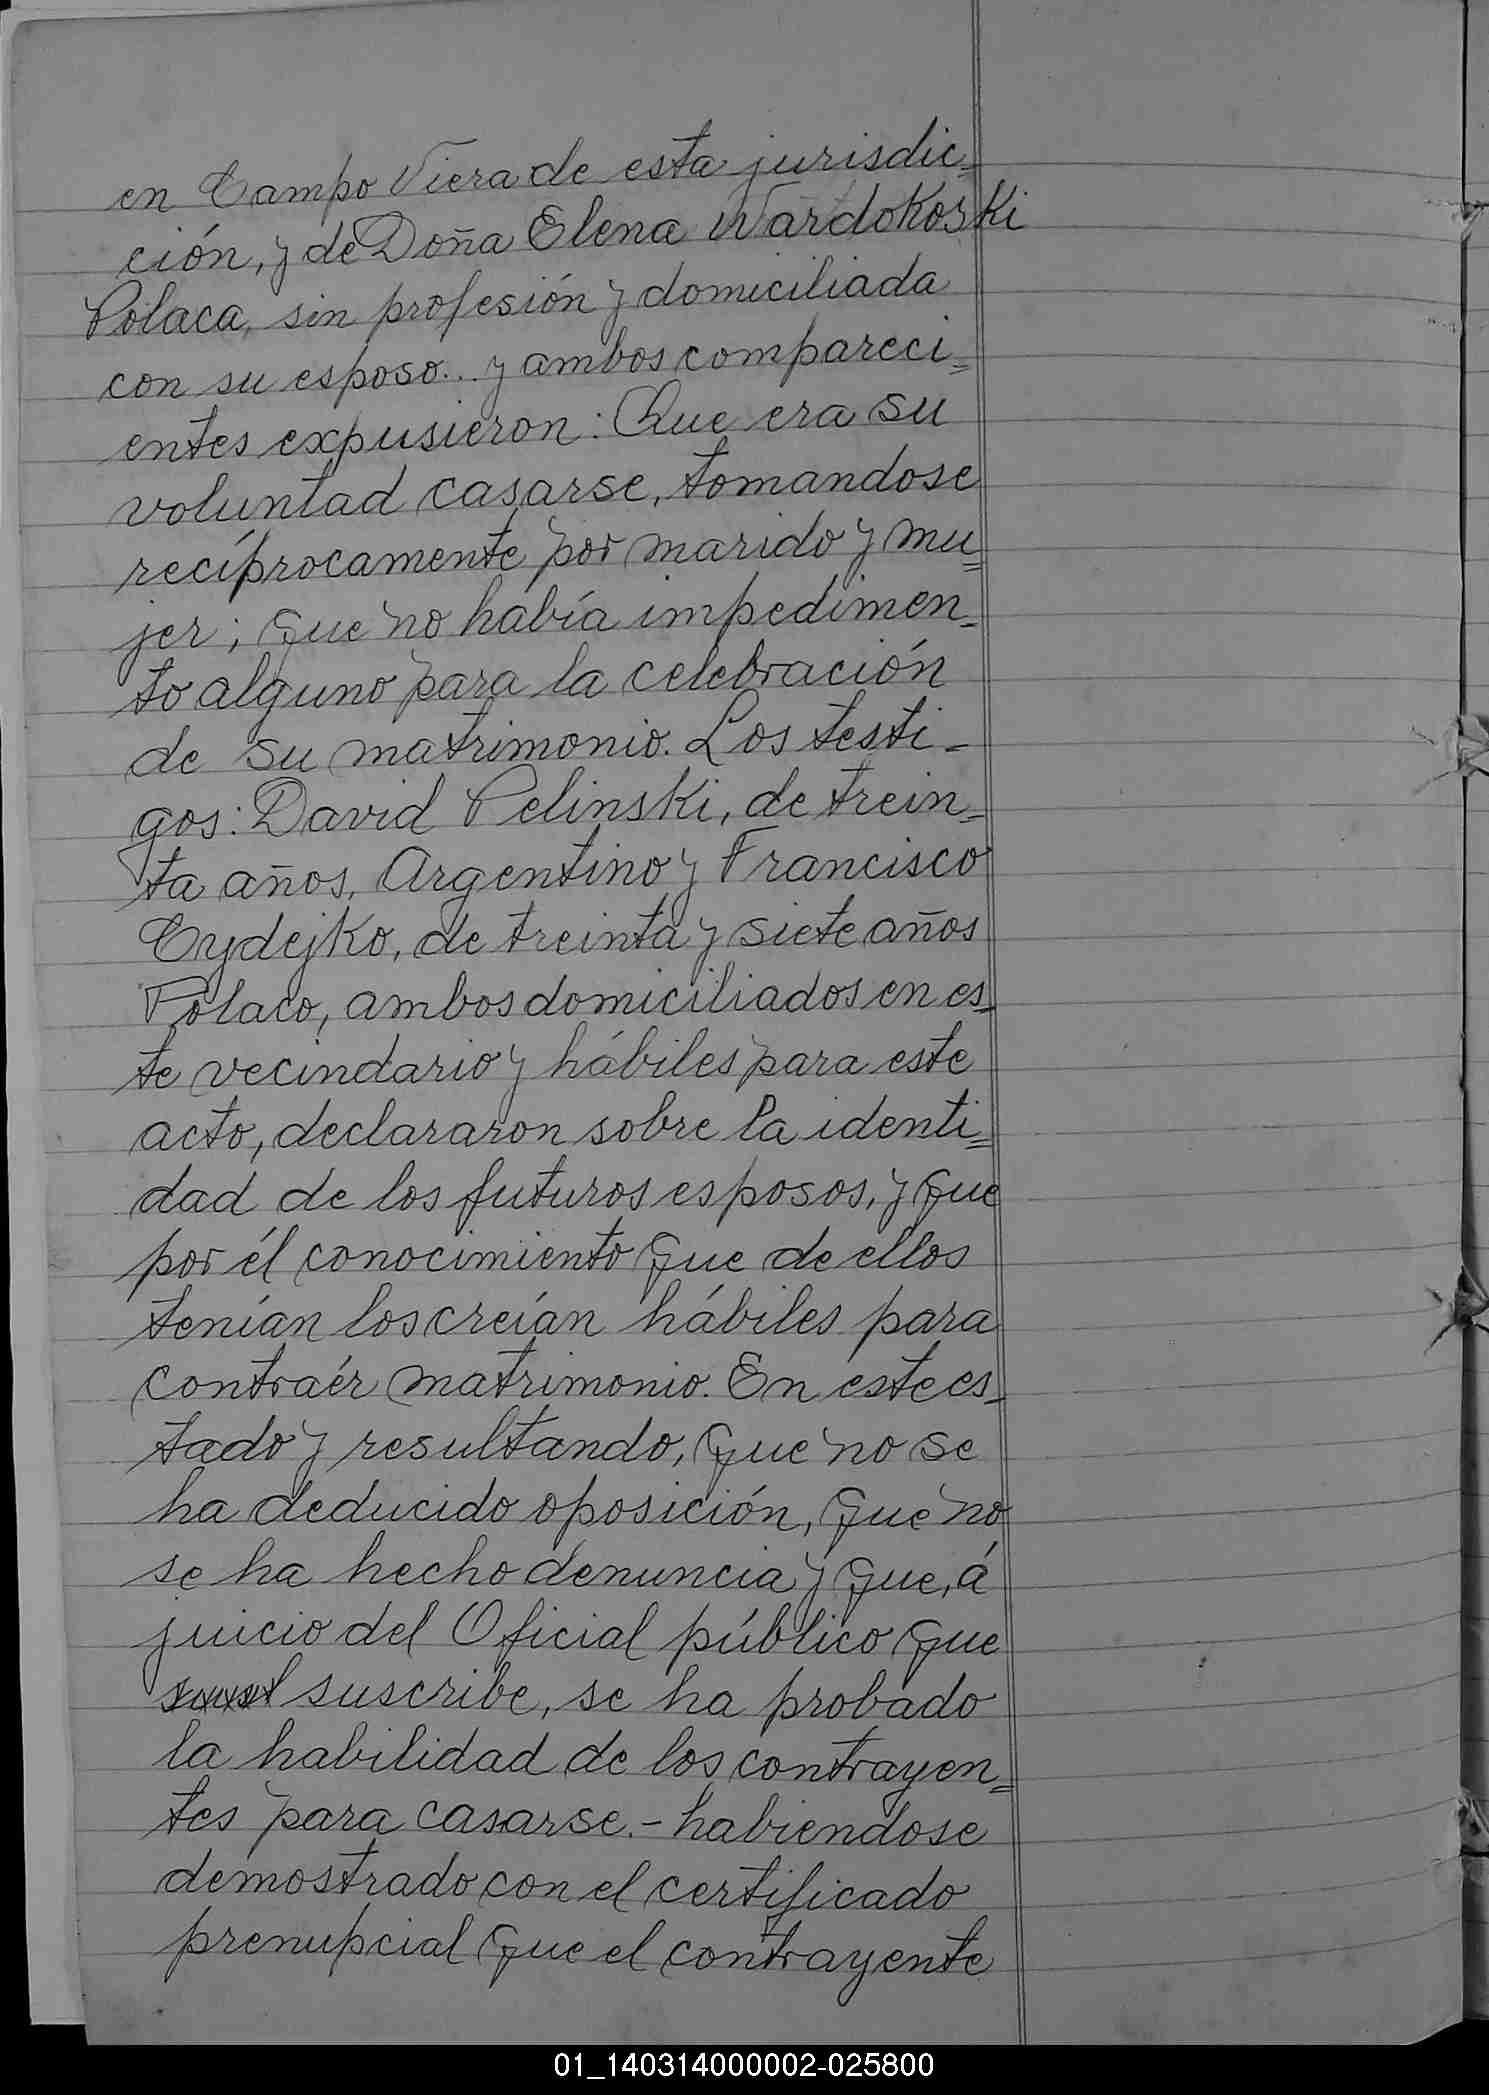 en Campo Viera de esta jurisdic=
ción, y de Doña Elena Wardokoski
Polaca, sin profesión y domiciliada
con su esposo... y ambos compareci=
entes expusieron: Que era su
voluntad casarse, tomandose
recíprocamente por marido y mu=
jer; que no había impedimen=
to alguno para la celebración
de su matrimonio. Los testi-
gos: David Pelinski, de trein=
ta años, Argentino y Francisco
Cydejko, de treinta y siete años
Polaco, ambos domiciliados en es=
te vecindario y hábiles para este
acto, declararon sobre la identi=
dad de los futuros esposos, y que
por él conocimiento que de ellos
tenían los creían hábiles para
contraér matrimonio. En este es=
tado y resultando, que no se
ha deducido oposición, que no
se ha hecho denuncia y que, á
juicio del Oficial público que
suscribe, se ha probado
la habilidad de los contrayen=
tes para casarse.- habiendose
demostrado con el certificado
prenupcial que el contrayente
01_140314000002-025800